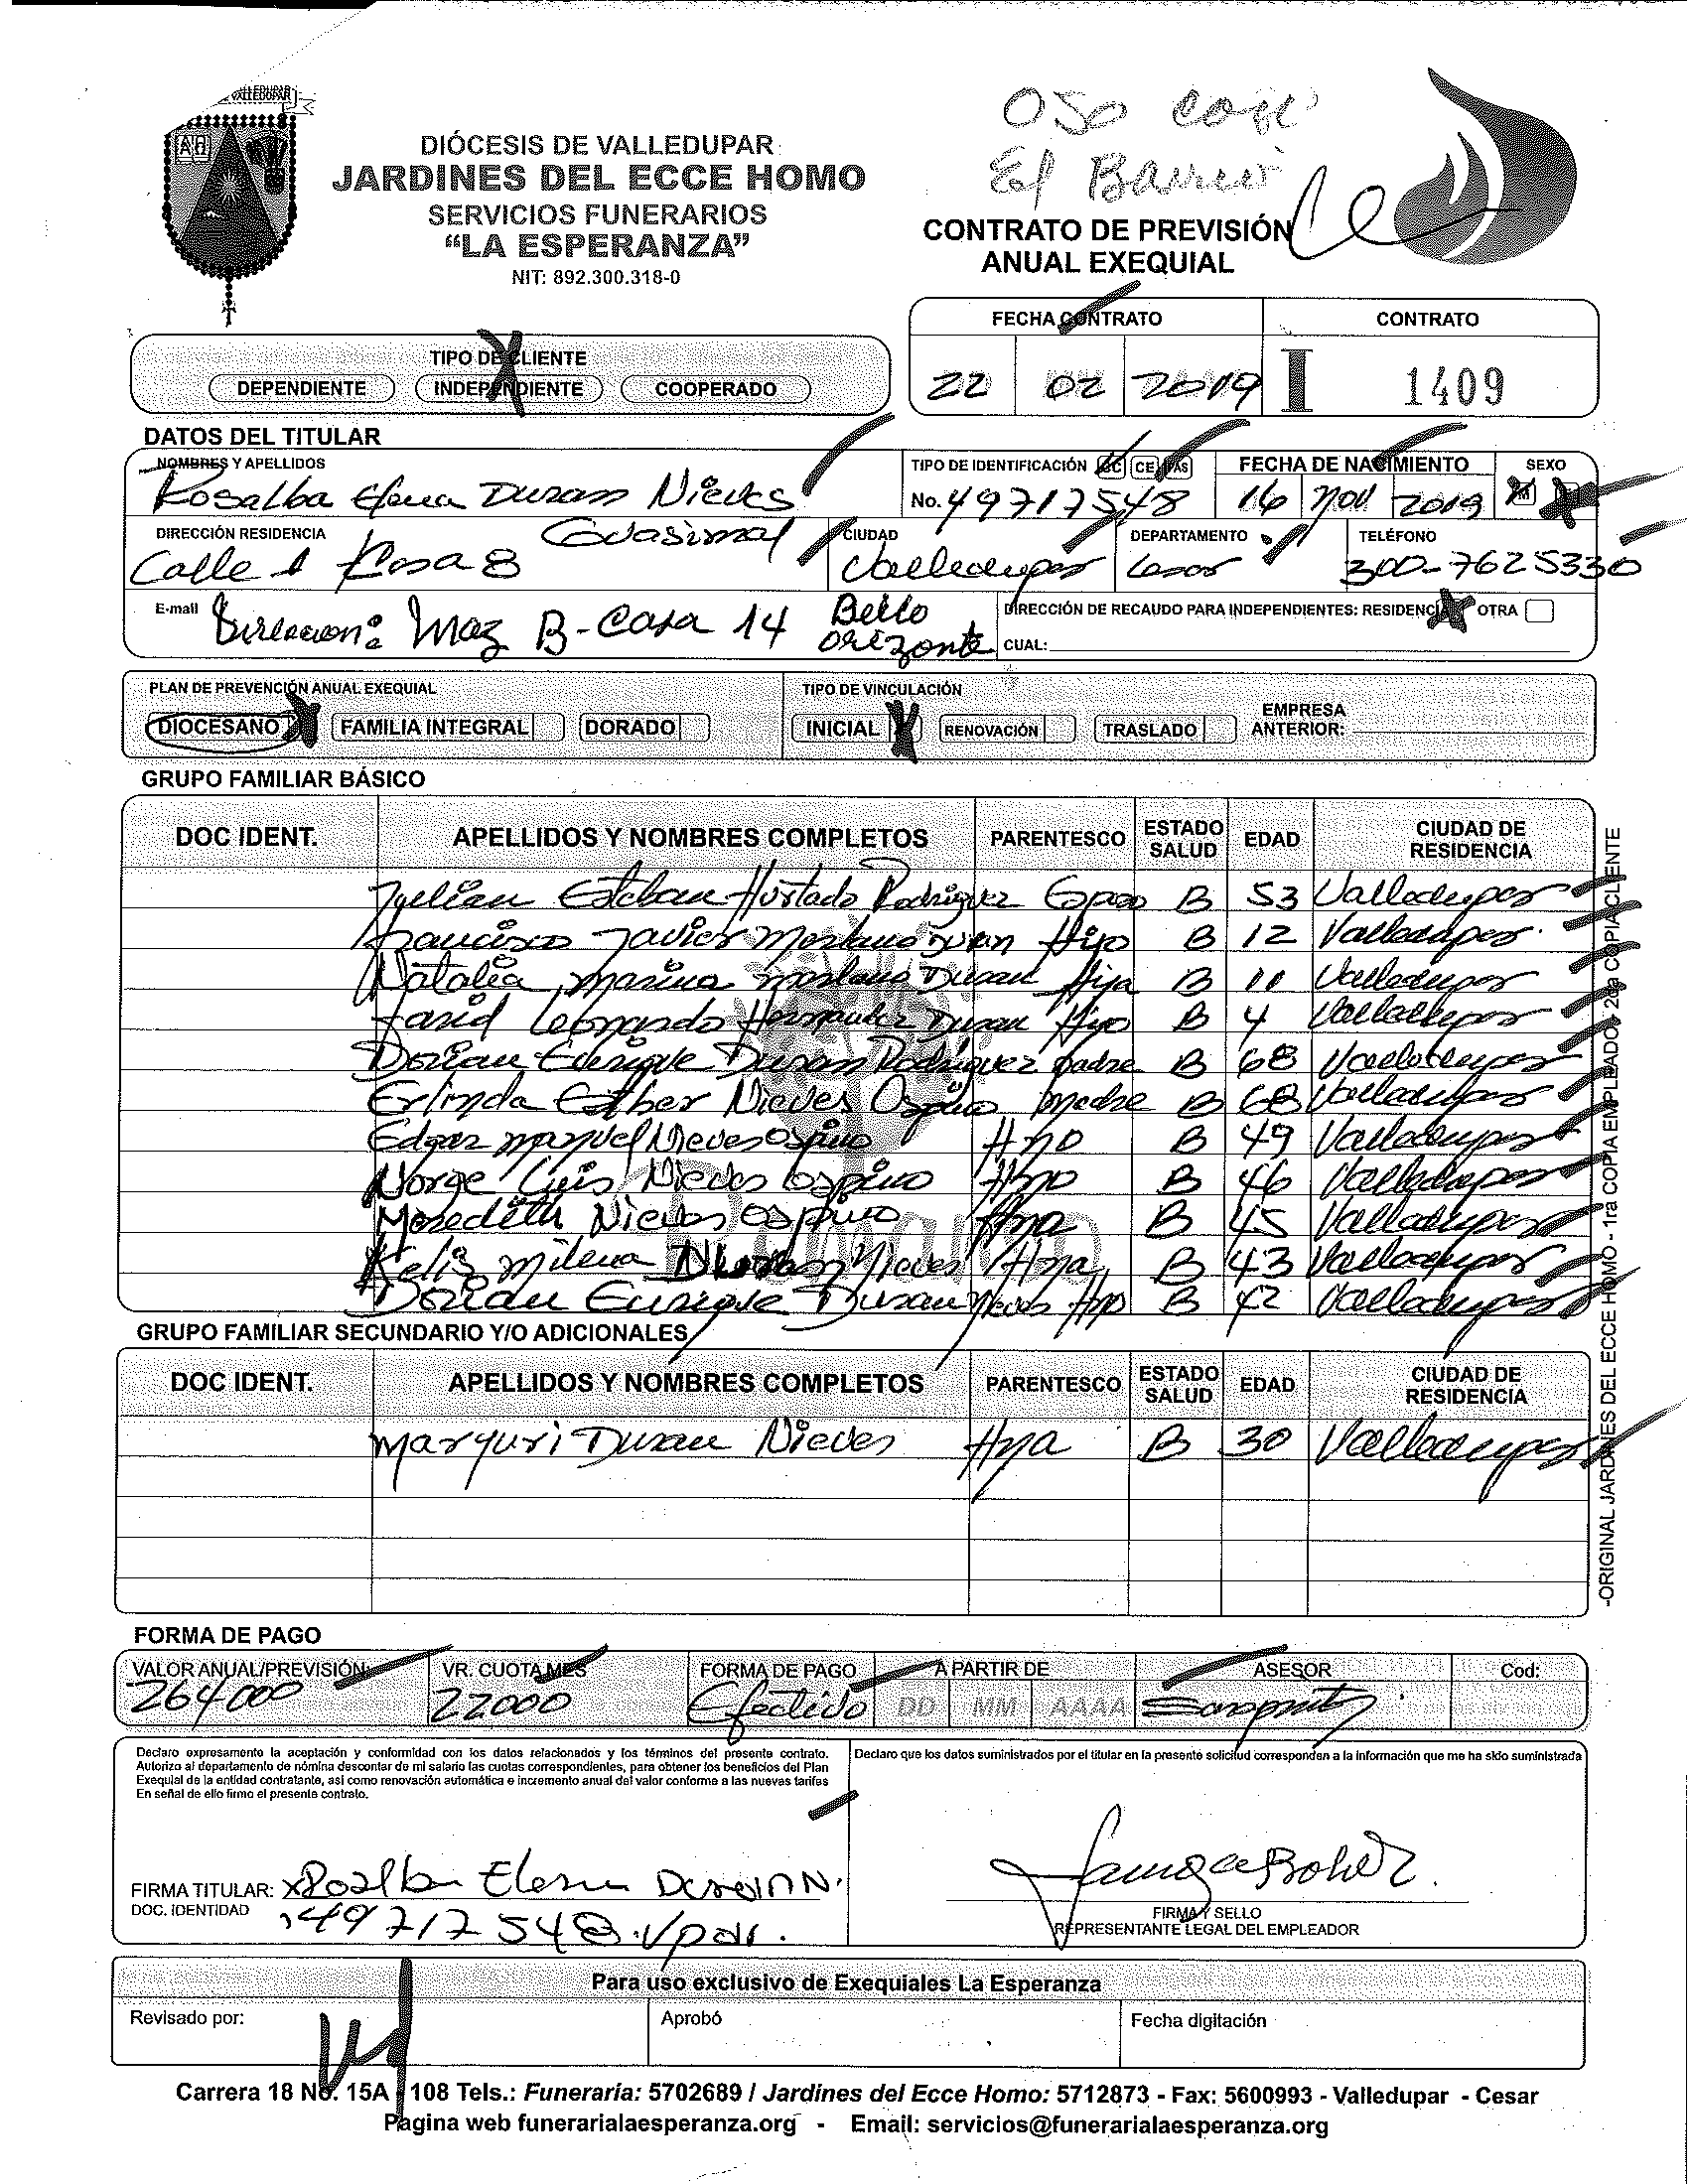 VALLEDUPAR
DIÓCESIS DE VALLEDUPAR
JARDINES DEL ECCE HOMO
SERVICIOS FUNERARIOS
“LA ESPERANZA”
NIT: 892.300.318-0
050
El Barrio
CONTRATO DE PREVISIÓN
ANUAL EXEQUIAL
FECHA CONTRATO CONTRATO
22 02 2019 I 1409
TIPO DE CLIENTE
DEPENDIENTE INDEPENDIENTE COOPERADO
DATOS DEL TITULAR
NOMBRES Y APELLIDOS
Rosalba Elena Duran Nieves
TIPO DE IDENTIFICACIÓN CC CE PAS
No. 49717548
FECHA DE NACIMIENTO
16 nov 2019
SEXO
M
DIRECCIÓN RESIDENCIA
Calle 1 Kosa 8 Guasimal
CIUDAD
Valledupar
DEPARTAMENTO
Cesar
TELÉFONO
300-7625330
E-mail
Direccion: Maz B-Casa 14 Bello
Orizonte
DIRECCIÓN DE RECAUDO PARA INDEPENDIENTES: RESIDENCIA OTRA
CUAL:
PLAN DE PREVENCIÓN ANUAL EXEQUIAL
DIOCESANO FAMILIA INTEGRAL DORADO
TIPO DE VINCULACIÓN
INICIAL RENOVACIÓN TRASLADO
EMPRESA
ANTERIOR:
GRUPO FAMILIAR BÁSICO
DOC IDENT. APELLIDOS Y NOMBRES COMPLETOS PARENTESCO ESTADO SALUD EDAD CIUDAD DE RESIDENCIA
Julian Esteban Hurtado Rodriguez Esposo B 53 Valledupar
Francisco Javier Duran Hijo B 12 Valledupar
Natalia Marina Duran Hija B 11 Valledupar
Farid Leonardo Hernandez Duran Hijo B 4 Valledupar
Dorian Enrique Duran Rodriguez padre B 68 Valledupar
Erlinda Esther Nieves Ospino madre B 68 Valledupar
Edgar manuel Nieves Ospino Hno B 49 Valledupar
Norge Luis Nieves Ospino Hno B 46 Valledupar
Meredith Nieves Ospino Hna B 45 Valledupar
Kelis milena Duran Nieves Hna B 43 Valledupar
Dorian Enrique Duran Nieves Hno B 42 Valledupar
GRUPO FAMILIAR SECUNDARIO Y/O ADICIONALES
DOC IDENT. APELLIDOS Y NOMBRES COMPLETOS PARENTESCO ESTADO SALUD EDAD CIUDAD DE RESIDENCIA
Maryuri Duran Nieves Hna B 30 Valledupar
-ORIGINAL JARDINES DEL ECCE HOMO - 1ra COPIA EMPLEADOR 2da COPIA CLIENTE
FORMA DE PAGO
VALOR ANUAL/PREVISIÓN VR. CUOTA MES FORMA DE PAGO A PARTIR DE ASESOR Cod:
264000 22000 Efectivo DD MM AAAA
Declaro expresamente la aceptación y conformidad con los datos relacionados y los términos del presente contrato.
Autorizo al departamento de nómina descontar de mi salario las cuotas correspondientes, para obtener los beneficios del Plan
Exequial de la entidad contratante, así como renovación automática e incremento anual del valor conforme a las nuevas tarifas
En señal de ello firmo el presente contrato.
Declaro que los datos suministrados por el titular en la presente solicitud corresponden a la información que me ha sido suministrada
FIRMA TITULAR: x Rosalba Elena Duran N.
DOC. IDENTIDAD 49717548 V/par.
FIRMA Y SELLO
REPRESENTANTE LEGAL DEL EMPLEADOR
Para uso exclusivo de Exequiales La Esperanza
Revisado por: Aprobó Fecha digitación
Carrera 18 No. 15A - 108 Tels.: Funeraria: 5702689 / Jardines del Ecce Homo: 5712873 - Fax: 5600993 - Valledupar - Cesar
Página web funerarialaesperanza.org - Email: servicios@funerarialaesperanza.org